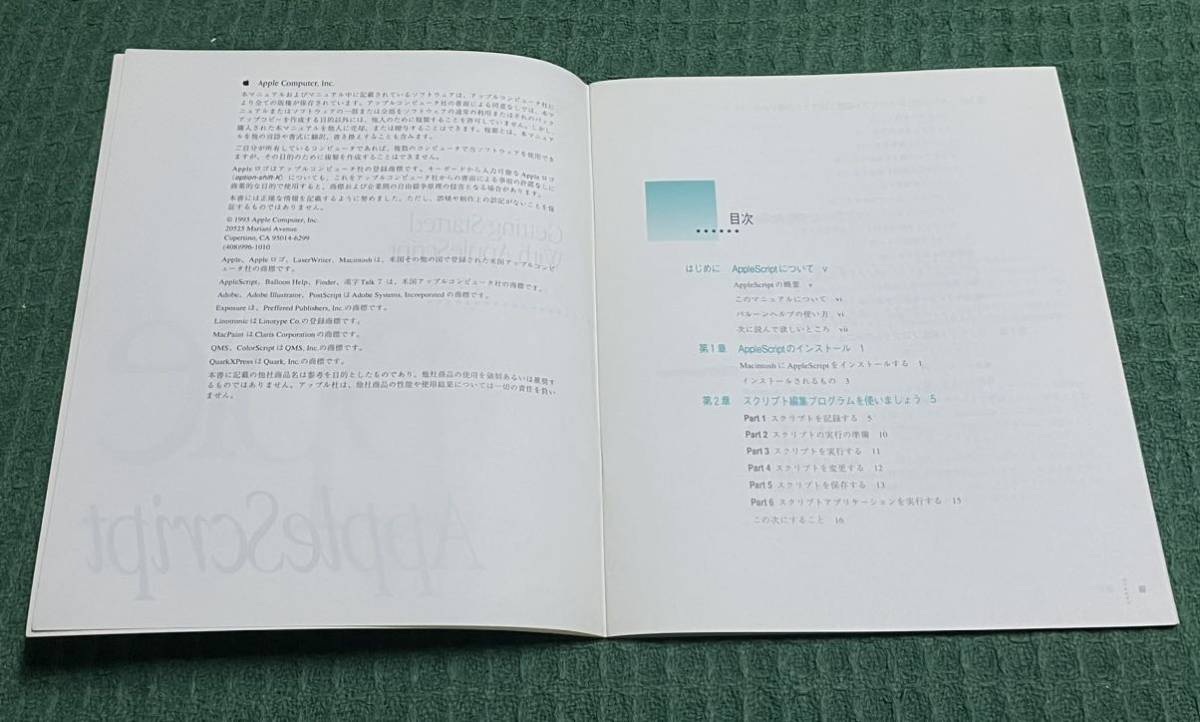 Apple Computer, Inc.
本マニュアルおよびマニュアル中に記載されているソフトウェアは、アップルコンピュータ社に
より全ての版権が保存されています。アップルコンピュータ社の書面による同意なしでは、本マ
ニュアルまたはソフトウェアの一部または全部をソフトウェアの通常の利用またはそのバック
アップコピーを作成する目的以外には、他人のために複製することを許可していません。しかし、
購入された本マニュアルを他人に売却、または贈与することはできます。複製とは、本マニュア
ルを他の言語や書式に翻訳、書き換えすることも含みます。
ご自分が所有しているコンピュータであれば、複数のコンピュータで当ソフトウェアを使用でき
ますが、その目的のために複製を作成することはできません。
Apple ロゴはアップルコンピュータ社の登録商標です。キーボードから入力可能な Apple ロゴ
(option-shift-K) についても、これをアップルコンピュータ社からの書面による事前の許諾なしに
商業的な目的で使用すると、商標および企業間の自由競争原理の侵害となる場合があります。
本書には正確な情報を記載するように努めました。ただし、誤植や制作上の誤記がないことを保
証するものではありません。
© 1993 Apple Computer, Inc.
20525 Mariani Avenue
Cupertino, CA 95014-6299
(408)996-1010
Apple、Apple ロゴ、LaserWriter、Macintosh は、米国その他の国で登録された米国アップルコンピ
ュータ社の商標です。
AppleScript、Balloon Help、Finder、漢字Talk 7 は、米国アップルコンピュータ社の商標です。
Adobe、Adobe Illustrator、PostScript は Adobe Systems, Incorporated の商標です。
Exposure は、Preffered Publishers, Inc. の商標です。
Linotronic は Linotype Co. の登録商標です。
MacPaint は Claris Corporation の商標です。
QMS、ColorScript は QMS, Inc. の商標です。
QuarkXPress は Quark, Inc. の商標です。
本書に記載の他社商品名は参考を目的としたものであり、他社商品の使用を強制あるいは推奨す
るものではありません。アップル社は、他社商品の性能や使用結果については一切の責任を負い
ません。
目次
はじめに AppleScriptについて v
AppleScriptの概要 v
このマニュアルについて vi
バルーンヘルプの使い方 vi
次に読んで欲しいところ vii
第1章 AppleScriptのインストール 1
MacintoshにAppleScriptをインストールする 1
インストールされるもの 3
第2章 スクリプト編集プログラムを使いましょう 5
Part 1 スクリプトを記録する 5
Part 2 スクリプトの実行の準備 10
Part 3 スクリプトを実行する 11
Part 4 スクリプトを変更する 12
Part 5 スクリプトを保存する 13
Part 6 スクリプトアプリケーションを実行する 15
この次にすること 16